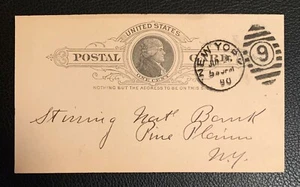 UNITED STATES
POSTAL CARD
ONE CENT
NOTHING BUT THE ADDRESS TO BE ON THIS SIDE
NEW YORK
90
9
Stissing Nat'l Bank
Pine Plains
N.Y.